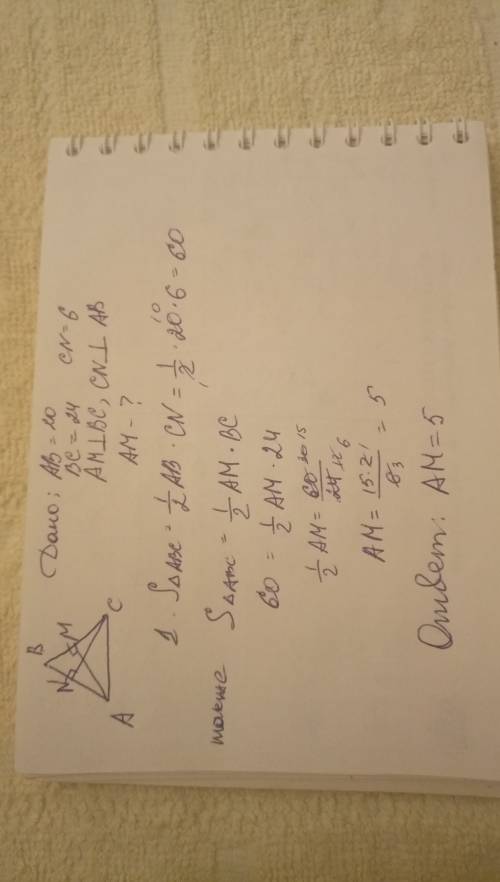 B
N
M
A
C
Дано: AB = 20
BC = 24 CN = 6
AM⊥BC, CN⊥AB
AM - ?
1. S△ABC = 1/2 AB · CN = 1/2 · 20 · 6 = 60
10
1
также S△ABC = 1/2 AM · BC
60 = 1/2 AM · 24
1/2 AM = 60/24
30 15
12 6
AM = 15·2/6 = 5
1
3
Ответ: AM = 5